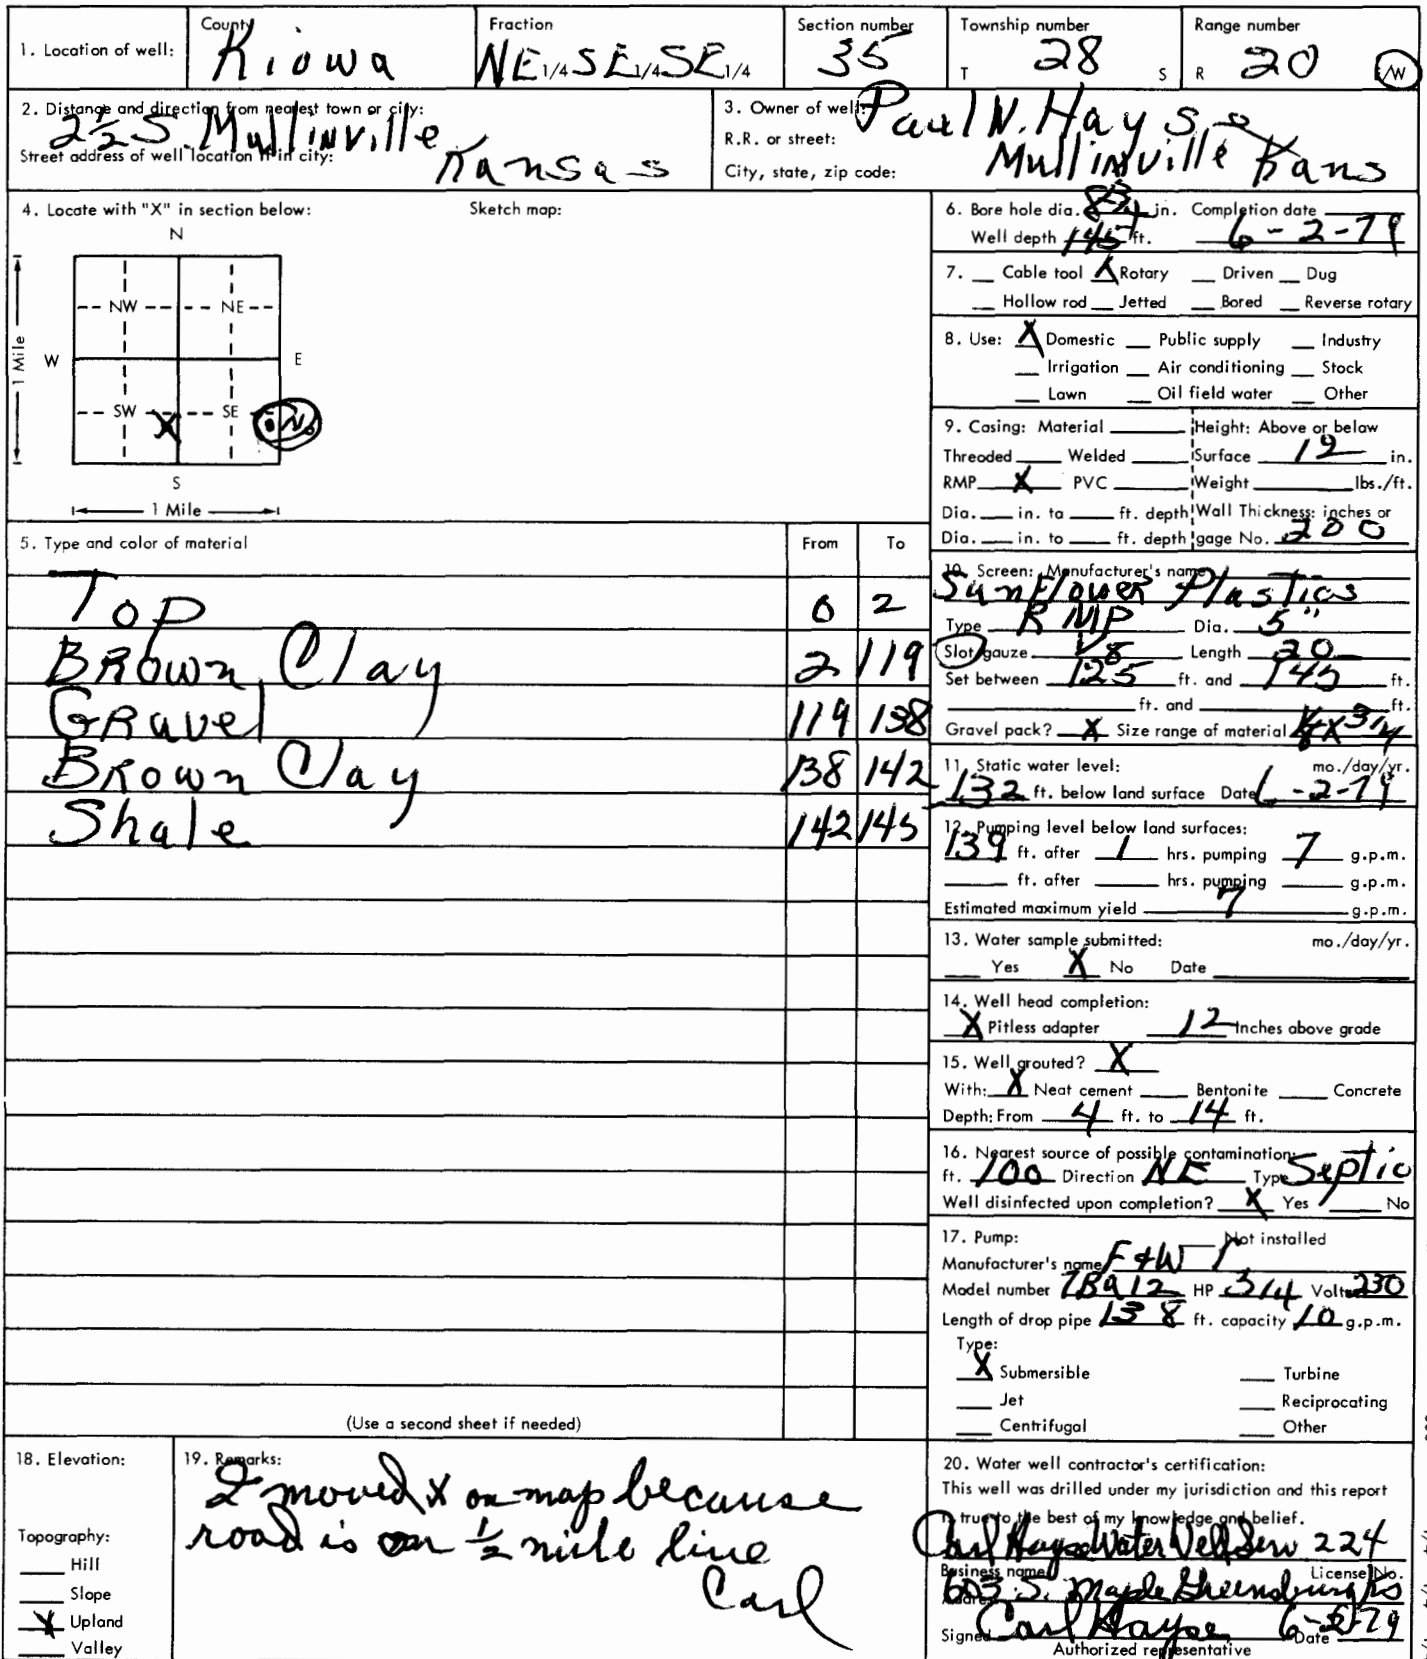 1. Location of well: County Kiowa Fraction NE 1/4 SE 1/4 SE 1/4 Section number 35 Township number T 28 S Range number R 20 E/W
2. Distance and direction from nearest town or city: 2 1/2 S. Mullinville
Street address of well location if in city: Kansas
3. Owner of well: Paul N. Hayse
R.R. or street:
City, state, zip code: Mullinville Kans
4. Locate with "X" in section below: Sketch map:
N
NW NE
W E
1 Mile
SW X SE No
S
1 Mile
5. Type and color of material From To
Top 0 2
Brown Clay 2 119
Gravel 119 138
Brown Clay 138 142
Shale 142 145
(Use a second sheet if needed)
6. Bore hole dia. 8 3/4 in. Completion date
Well depth 145 ft. 6-2-79
7. Cable tool X Rotary Driven Dug
Hollow rod Jetted Bored Reverse rotary
8. Use: X Domestic Public supply Industry
Irrigation Air conditioning Stock
Lawn Oil field water Other
9. Casing: Material Height: Above or below
Threaded Welded Surface 12 in.
RMP X PVC Weight lbs./ft.
Dia. in. to ft. depth Wall Thickness: inches or
Dia. in. to ft. depth gage No. 200
10. Screen: Manufacturer's name
Sunflower Plastics
Type RMP Dia. 5"
Slot gauze 1/8 Length 20
Set between 125 ft. and 145 ft.
ft. and ft.
Gravel pack? X Size range of material x 3/4
11. Static water level: mo./day/yr.
132 ft. below land surface Date 6-2-79
12. Pumping level below land surfaces:
139 ft. after 1 hrs. pumping 7 g.p.m.
ft. after hrs. pumping g.p.m.
Estimated maximum yield 7 g.p.m.
13. Water sample submitted: mo./day/yr.
Yes X No Date
14. Well head completion:
X Pitless adapter 12 Inches above grade
15. Well grouted? X
With: X Neat cement Bentonite Concrete
Depth: From 4 ft. to 14 ft.
16. Nearest source of possible contamination:
ft. 100 Direction NE Type Septic
Well disinfected upon completion? X Yes No
17. Pump: Not installed
Manufacturer's name F & W
Model number 7B912 HP 3/4 Volts 230
Length of drop pipe 138 ft. capacity 10 g.p.m.
Type:
X Submersible Turbine
Jet Reciprocating
Centrifugal Other
18. Elevation:
Topography:
Hill
Slope
X Upland
Valley
19. Remarks:
I moved X on map because
road is on 1/2 mile line
Carl
20. Water well contractor's certification:
This well was drilled under my jurisdiction and this report
is true to the best of my knowledge and belief.
Carl Hayse Water Well Serv 224
Business name License No.
603 S. Maple Greensburg Ks
Address
Signed Carl Hayse Date 6-2-79
Authorized representative